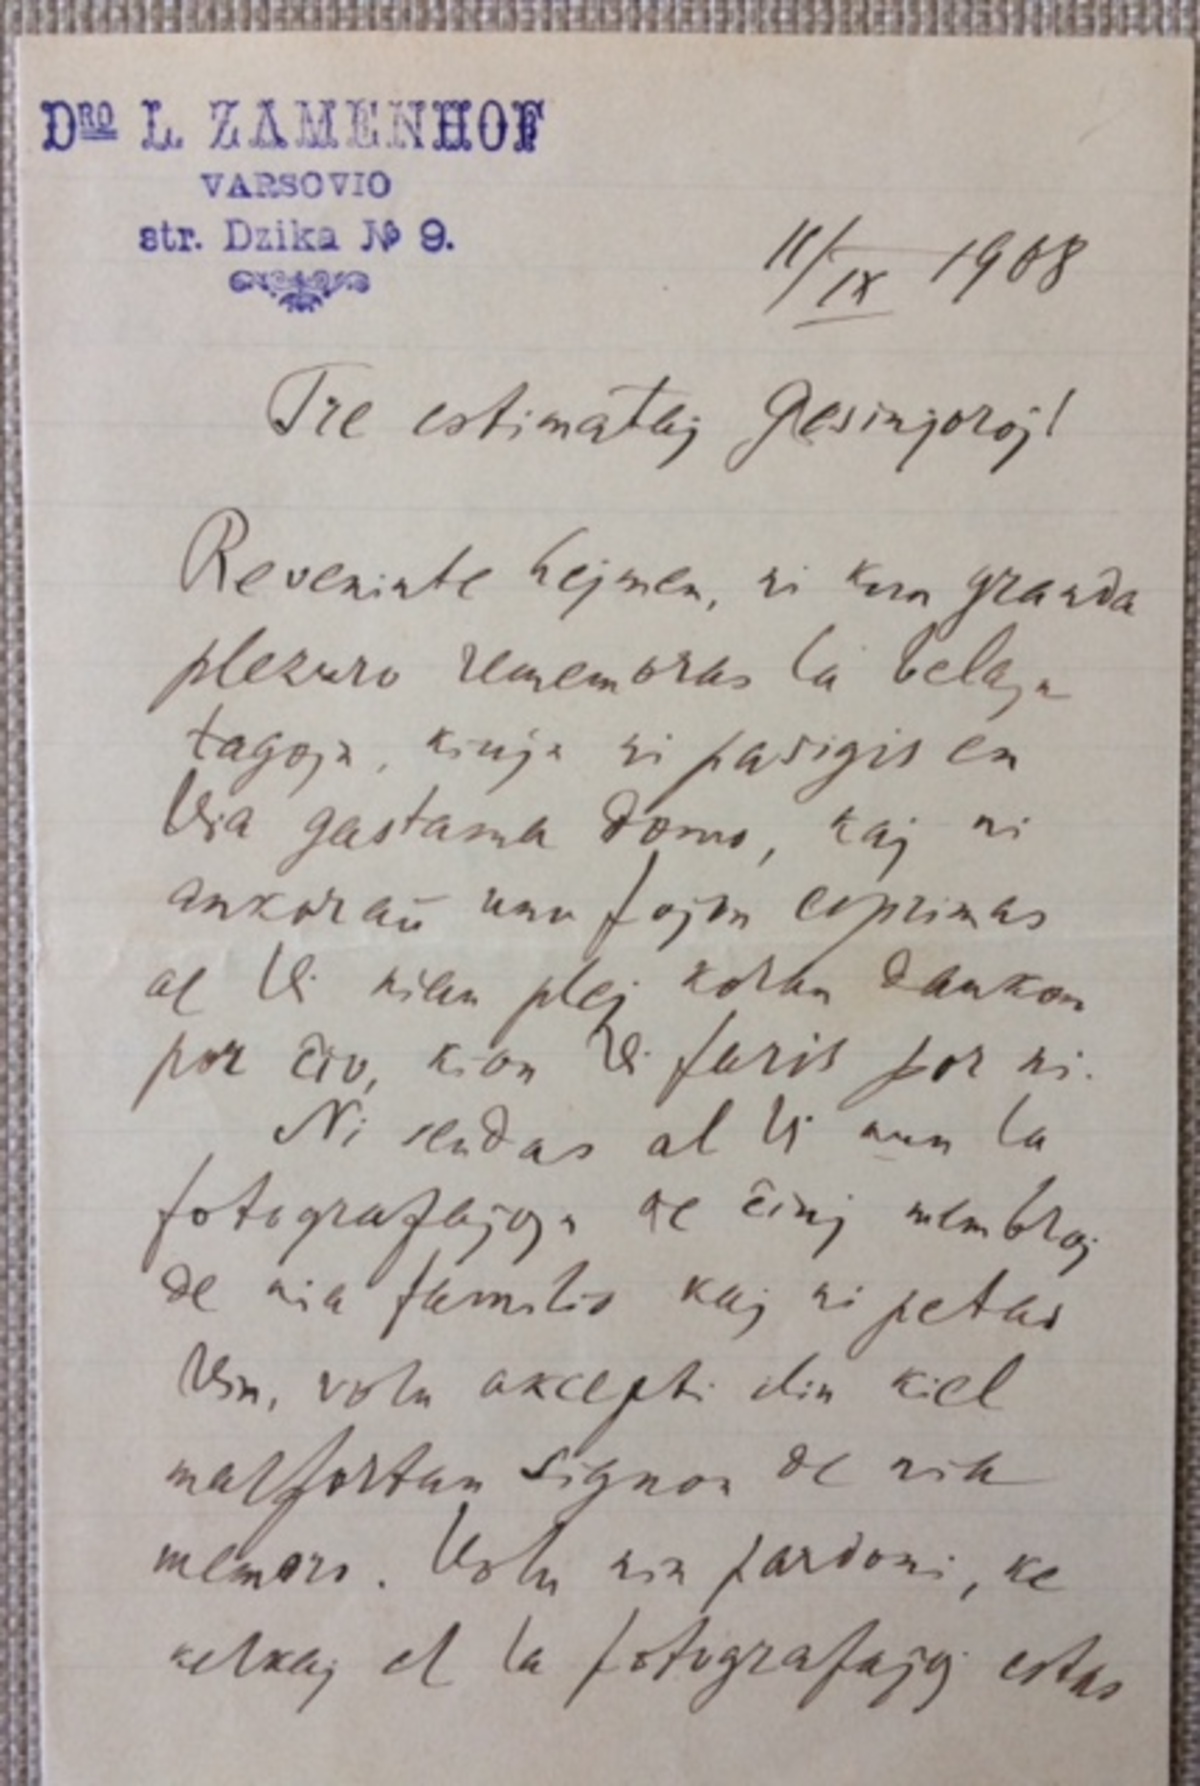 DRO L. ZAMENHOF
VARSOVIO
str. Dzika № 9.
11/IX 1908
Tre estimataj Gesinjoroj!
Reveninte hejmen, ni kun granda
plezuro rememoras la belajn
tagojn, kiujn ni pasigis en
Via gastama domo, kaj ni
ankoraŭ unu fojon esprimas
al Vi nian plej koran dankon
por ĉio, kion Vi faris por ni.
Ni sendas al Vi nun la
fotografaĵojn de ĉiuj membroj
de nia familio kaj ni petas
Vin, volu akcepti ilin kiel
malfortan signon de nia
memoro. Volu nin pardoni, ke
kelkaj el la fotografaĵoj estas